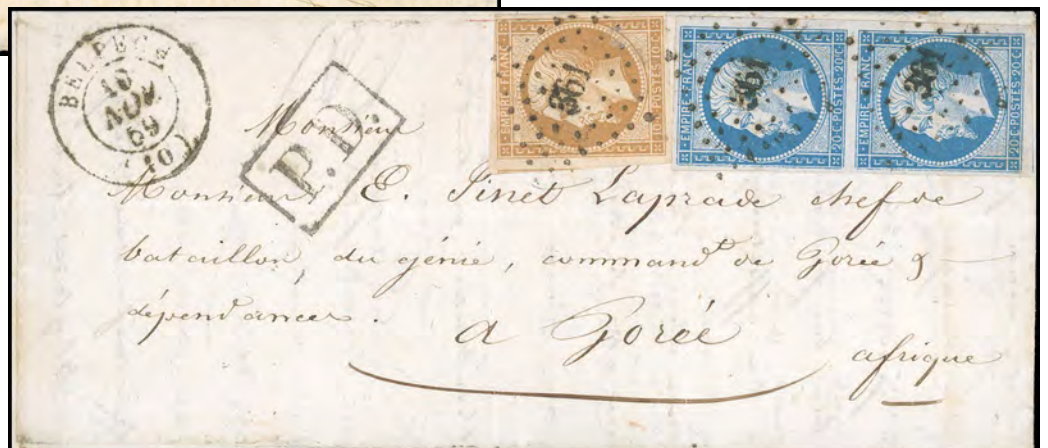 BELPECH
AOUT
(10)
P.D.
361
EMPIRE FRANC.
10c POSTES 10c
361
EMPIRE FRANC.
20c POSTES 20c
EMPIRE FRANC.
20c POSTES 20c
Monsieur
Monsieur E. Pinet Laprade chef de
bataillon, du génie, command^t de Gorée &
dépendances.
a Gorée
afrique